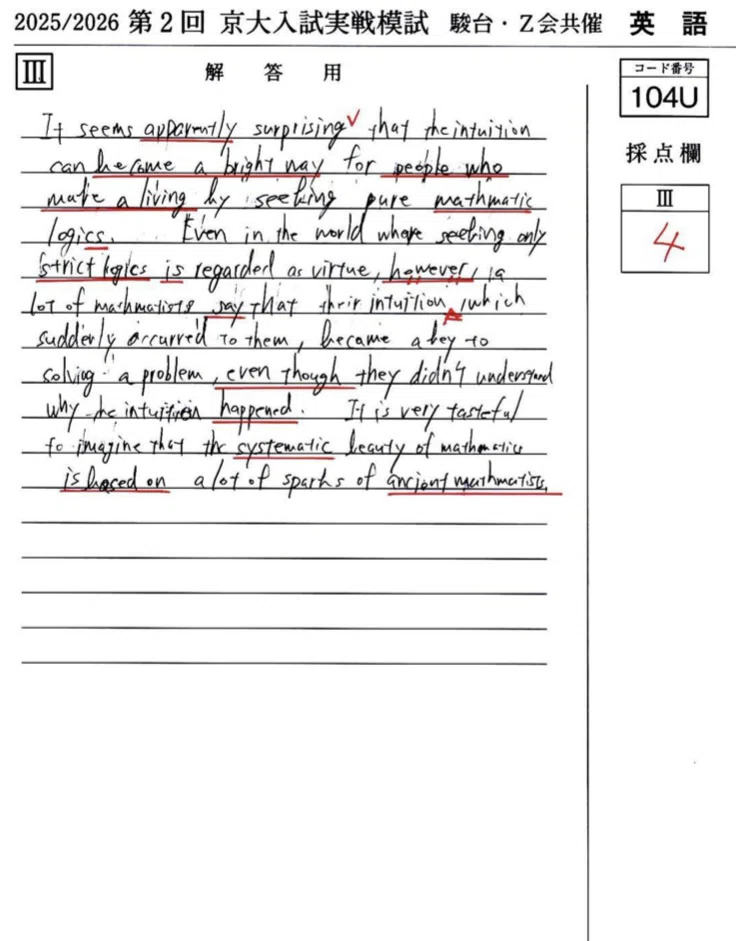 2025/2026 第2回 京大入試実戦模試 駿台・Z会共催 英 語
III
解 答 用
コード番号
104U
採点欄
III
4
It seems apparently surprising that the intuition
can became a bright way for people who
make a living by seeking pure mathmatic
logics. Even in the world where seeking only
strict logics is regarded as virtue, however, a
lot of mathmatists say that their intuition, which
suddenly occurred to them, became a key to
solving a problem, even though they didn't understand
why the intuition happened. It is very tasteful
to imagine that the systematic beauty of mathmatics
is based on a lot of sparks of ancient mathmatists.